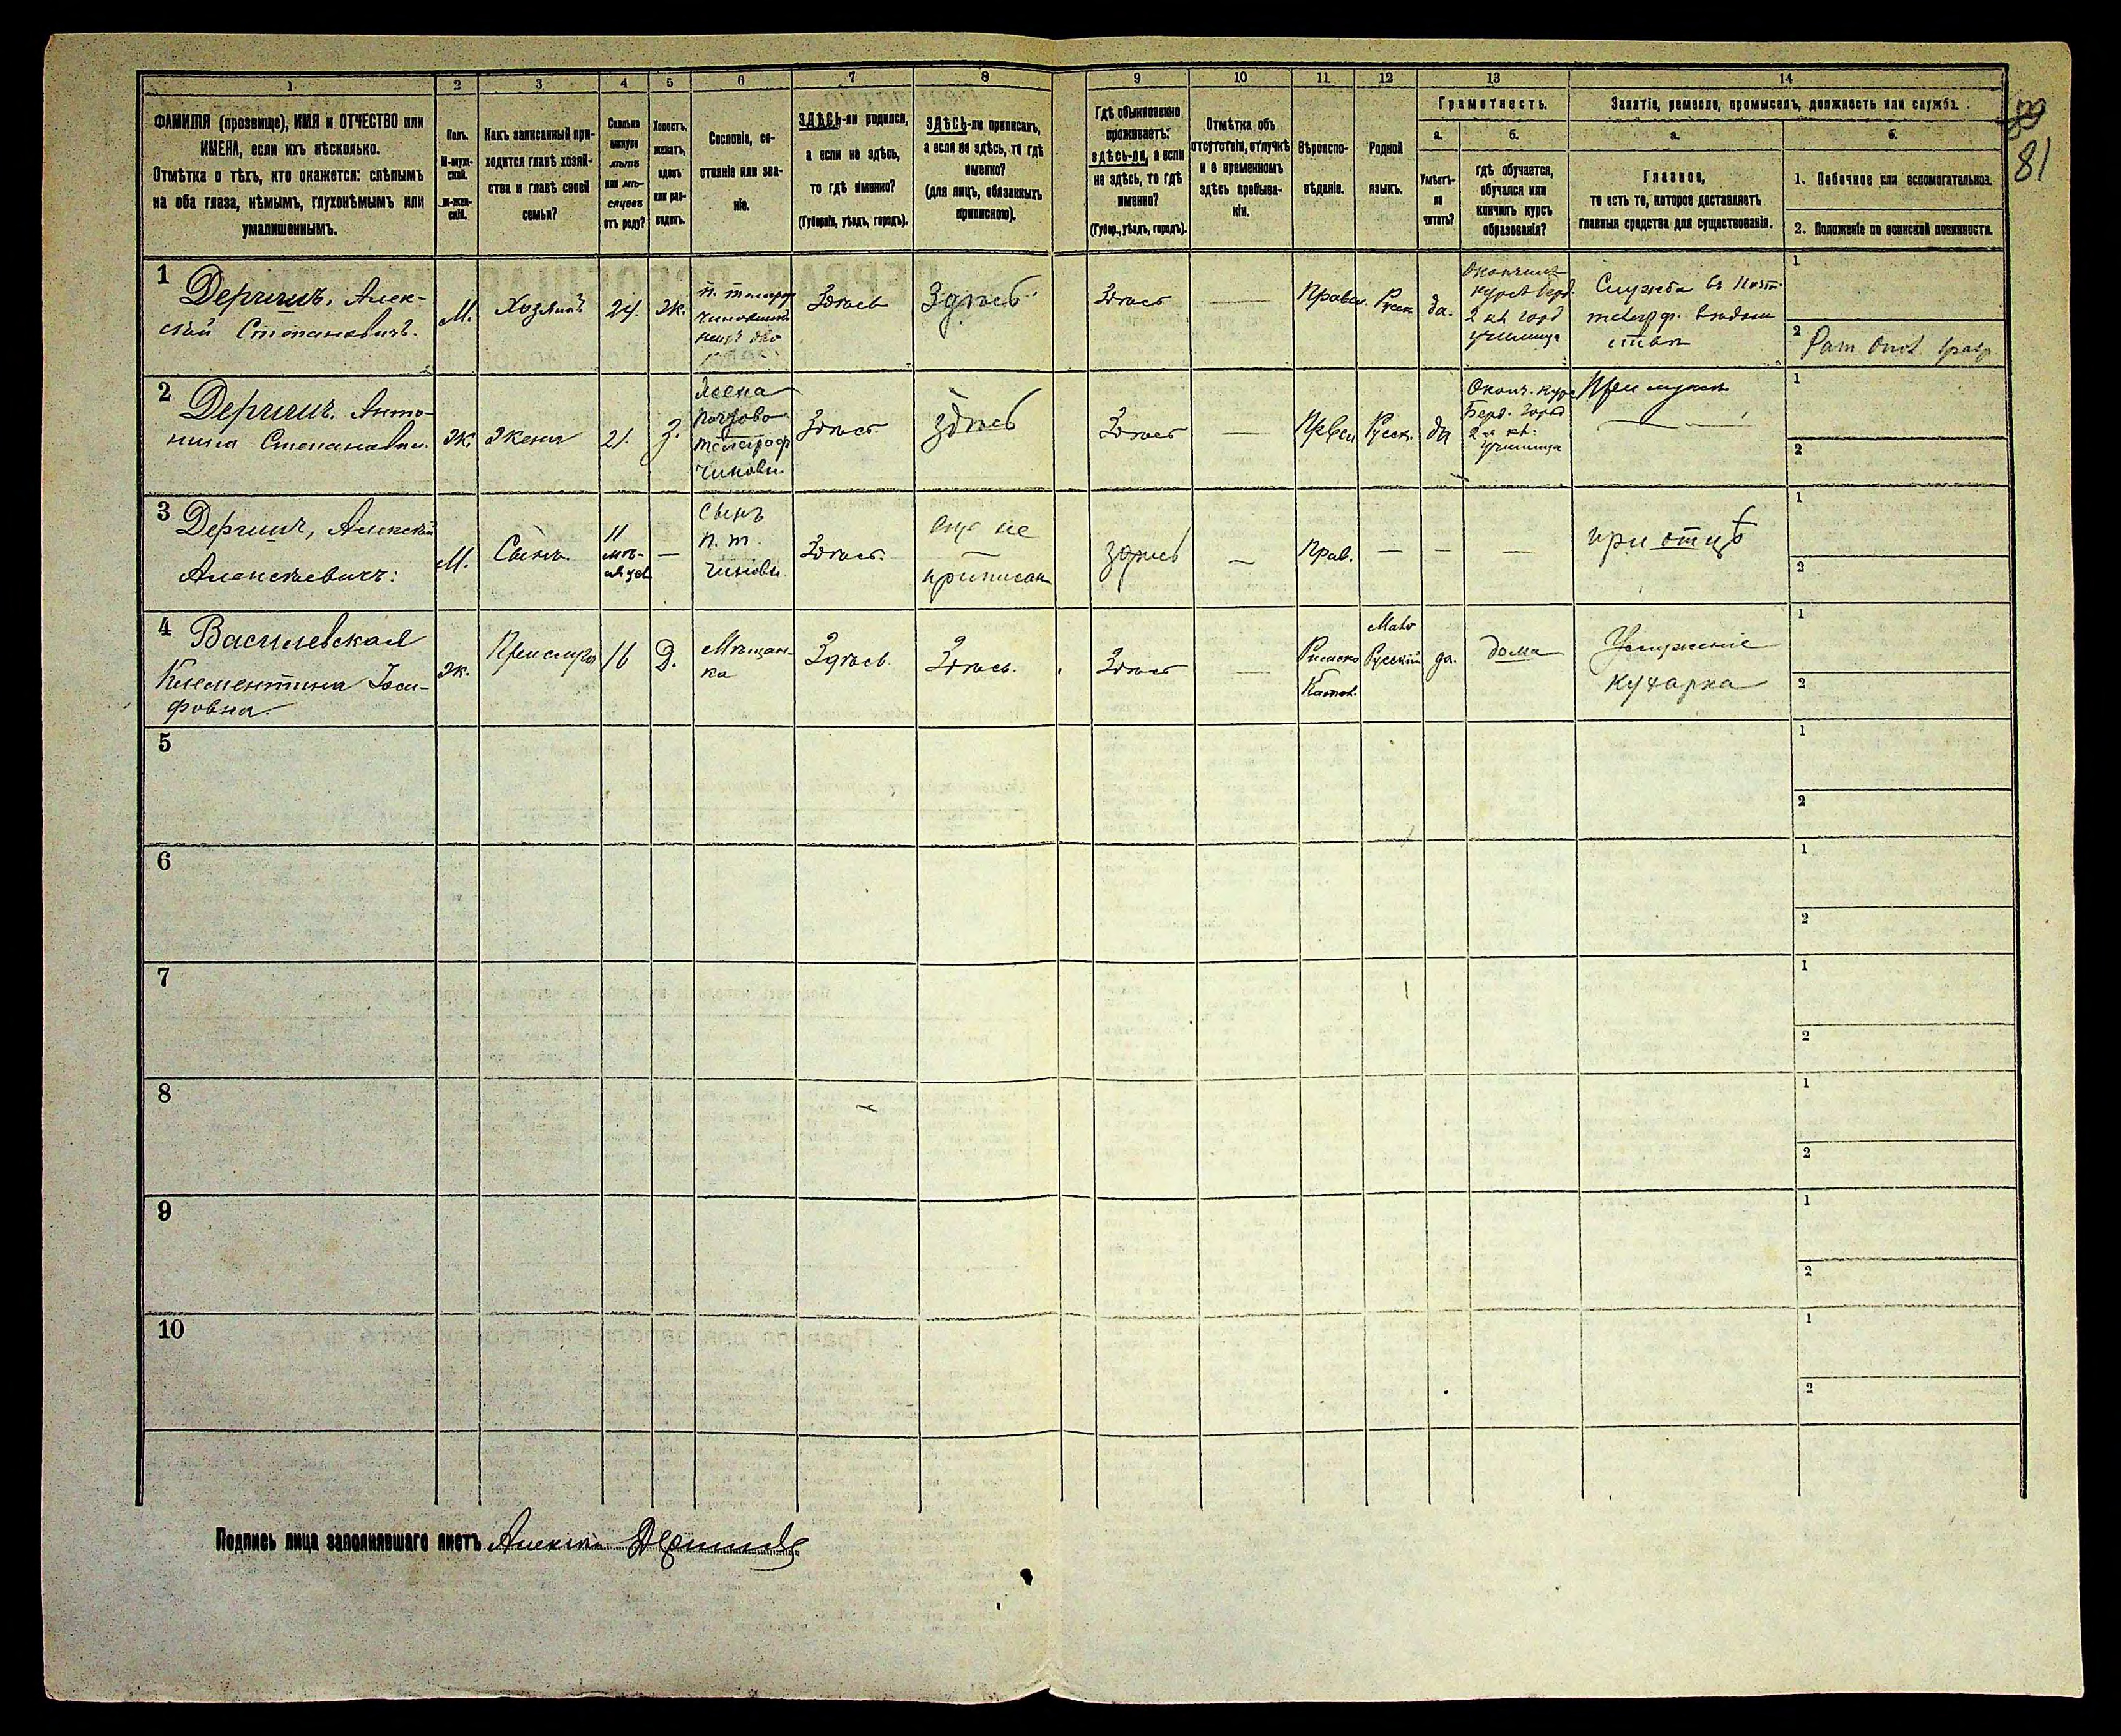 1 2 3 4 5 6 7 8 9 10 11 12 13 14
81
ФАМИЛІЯ (прозвище), ИМЯ и ОТЧЕСТВО или
ИМЕНА, если ихъ нѣсколько.
Отмѣтка о тѣхъ, кто окажется: слѣпымъ
на оба глаза, нѣмымъ, глухонѣмымъ или
умалишеннымъ.
Полъ.
М-муж-
ской.
Ж-жен-
скій.
Какъ записанный при-
ходится главѣ хозяй-
ства и главѣ своей
семьи?
Сколько
минуло
лѣтъ
или мѣ-
сяцевъ
отъ роду?
Холостъ,
женатъ,
вдовъ
или раз-
веденъ.
Сословіе, со-
стояніе или зва-
ніе.
ЗДѢСЬ-ли родился,
а если не здѣсь,
то гдѣ именно?
(Губернія, уѣздъ, городъ).
ЗДѢСЬ-ли приписанъ,
а если не здѣсь, то гдѣ
именно?
(для лицъ, обязанныхъ
припискою).
Гдѣ обыкновенно
проживаетъ:
здѣсь-ли, а если
не здѣсь, то гдѣ
именно?
(Губер., уѣздъ, городъ).
Отмѣтка объ
отсутствіи, отлучкѣ
и о временномъ
здѣсь пребыва-
ніи.
Вѣроиспо-
вѣданіе.
Родной
языкъ.
Грамотность.
а. б.
Умѣетъ-
ли
читать?
гдѣ обучается,
обучался или
кончилъ курсъ
образованія?
Занятіе, ремесло, промыселъ, должность или служба.
а. б.
Главное,
то есть то, которое доставляетъ
главныя средства для существованія.
1. Побочное или вспомогательное.
2. Положеніе по воинской повинности.
1
Алек-
сѣй Степановичъ.
М.
Хозяинъ
24.
ж.
чиновникъ
Здѣсь
Здѣсь
Здѣсь
—
Правос.
Русск
да.
Окончилъ
курсъ Берд.
2 кл. город
училища
Служба въ Почт.
телегрф. вѣдом
ствѣ
1
2
2
Анто-
нина Степановн.
Ж
Жена
21.
З.
Жена
Почтово
телеграф
чиновн.
Здѣсь
Здѣсь
Здѣсь
—
Русск.
да
Оконч. курс
Берд. город
2 кл.
училища
При мужѣ
1
2
3
Алексѣй
Алексѣевичъ:
М.
Сынъ.
11
мѣ-
сяцев
—
Сынъ
п. т.
чиновн.
Здѣсь
еще не
приписан
здѣсь
—
Прав.
—
—
—
при отцѣ
1
2
4
Василевская
Клементина Іоси-
фовна.
Ж.
Прислуга
16
Д.
Мѣщан-
ка
Здѣсь.
Здѣсь.
Здѣсь
—
Римско
Катол.
Мало
Русскій
да.
дома
Услуженіе
кухарка
1
2
5
1
2
6
1
2
7
1
2
8
1
2
9
1
2
10
1
2
Подпись лица заполнявшаго листъ Алексѣй